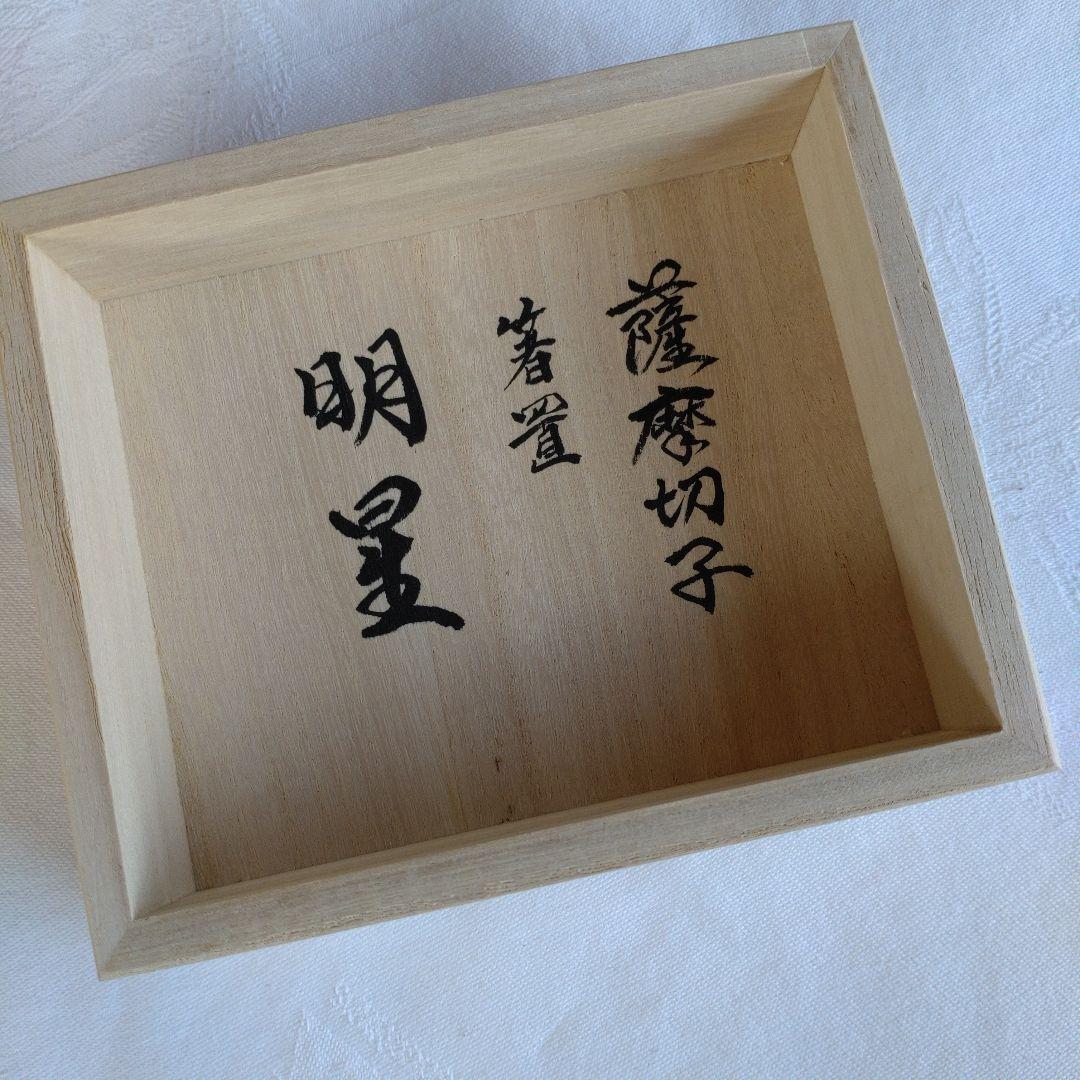 薩摩切子
箸置
明星